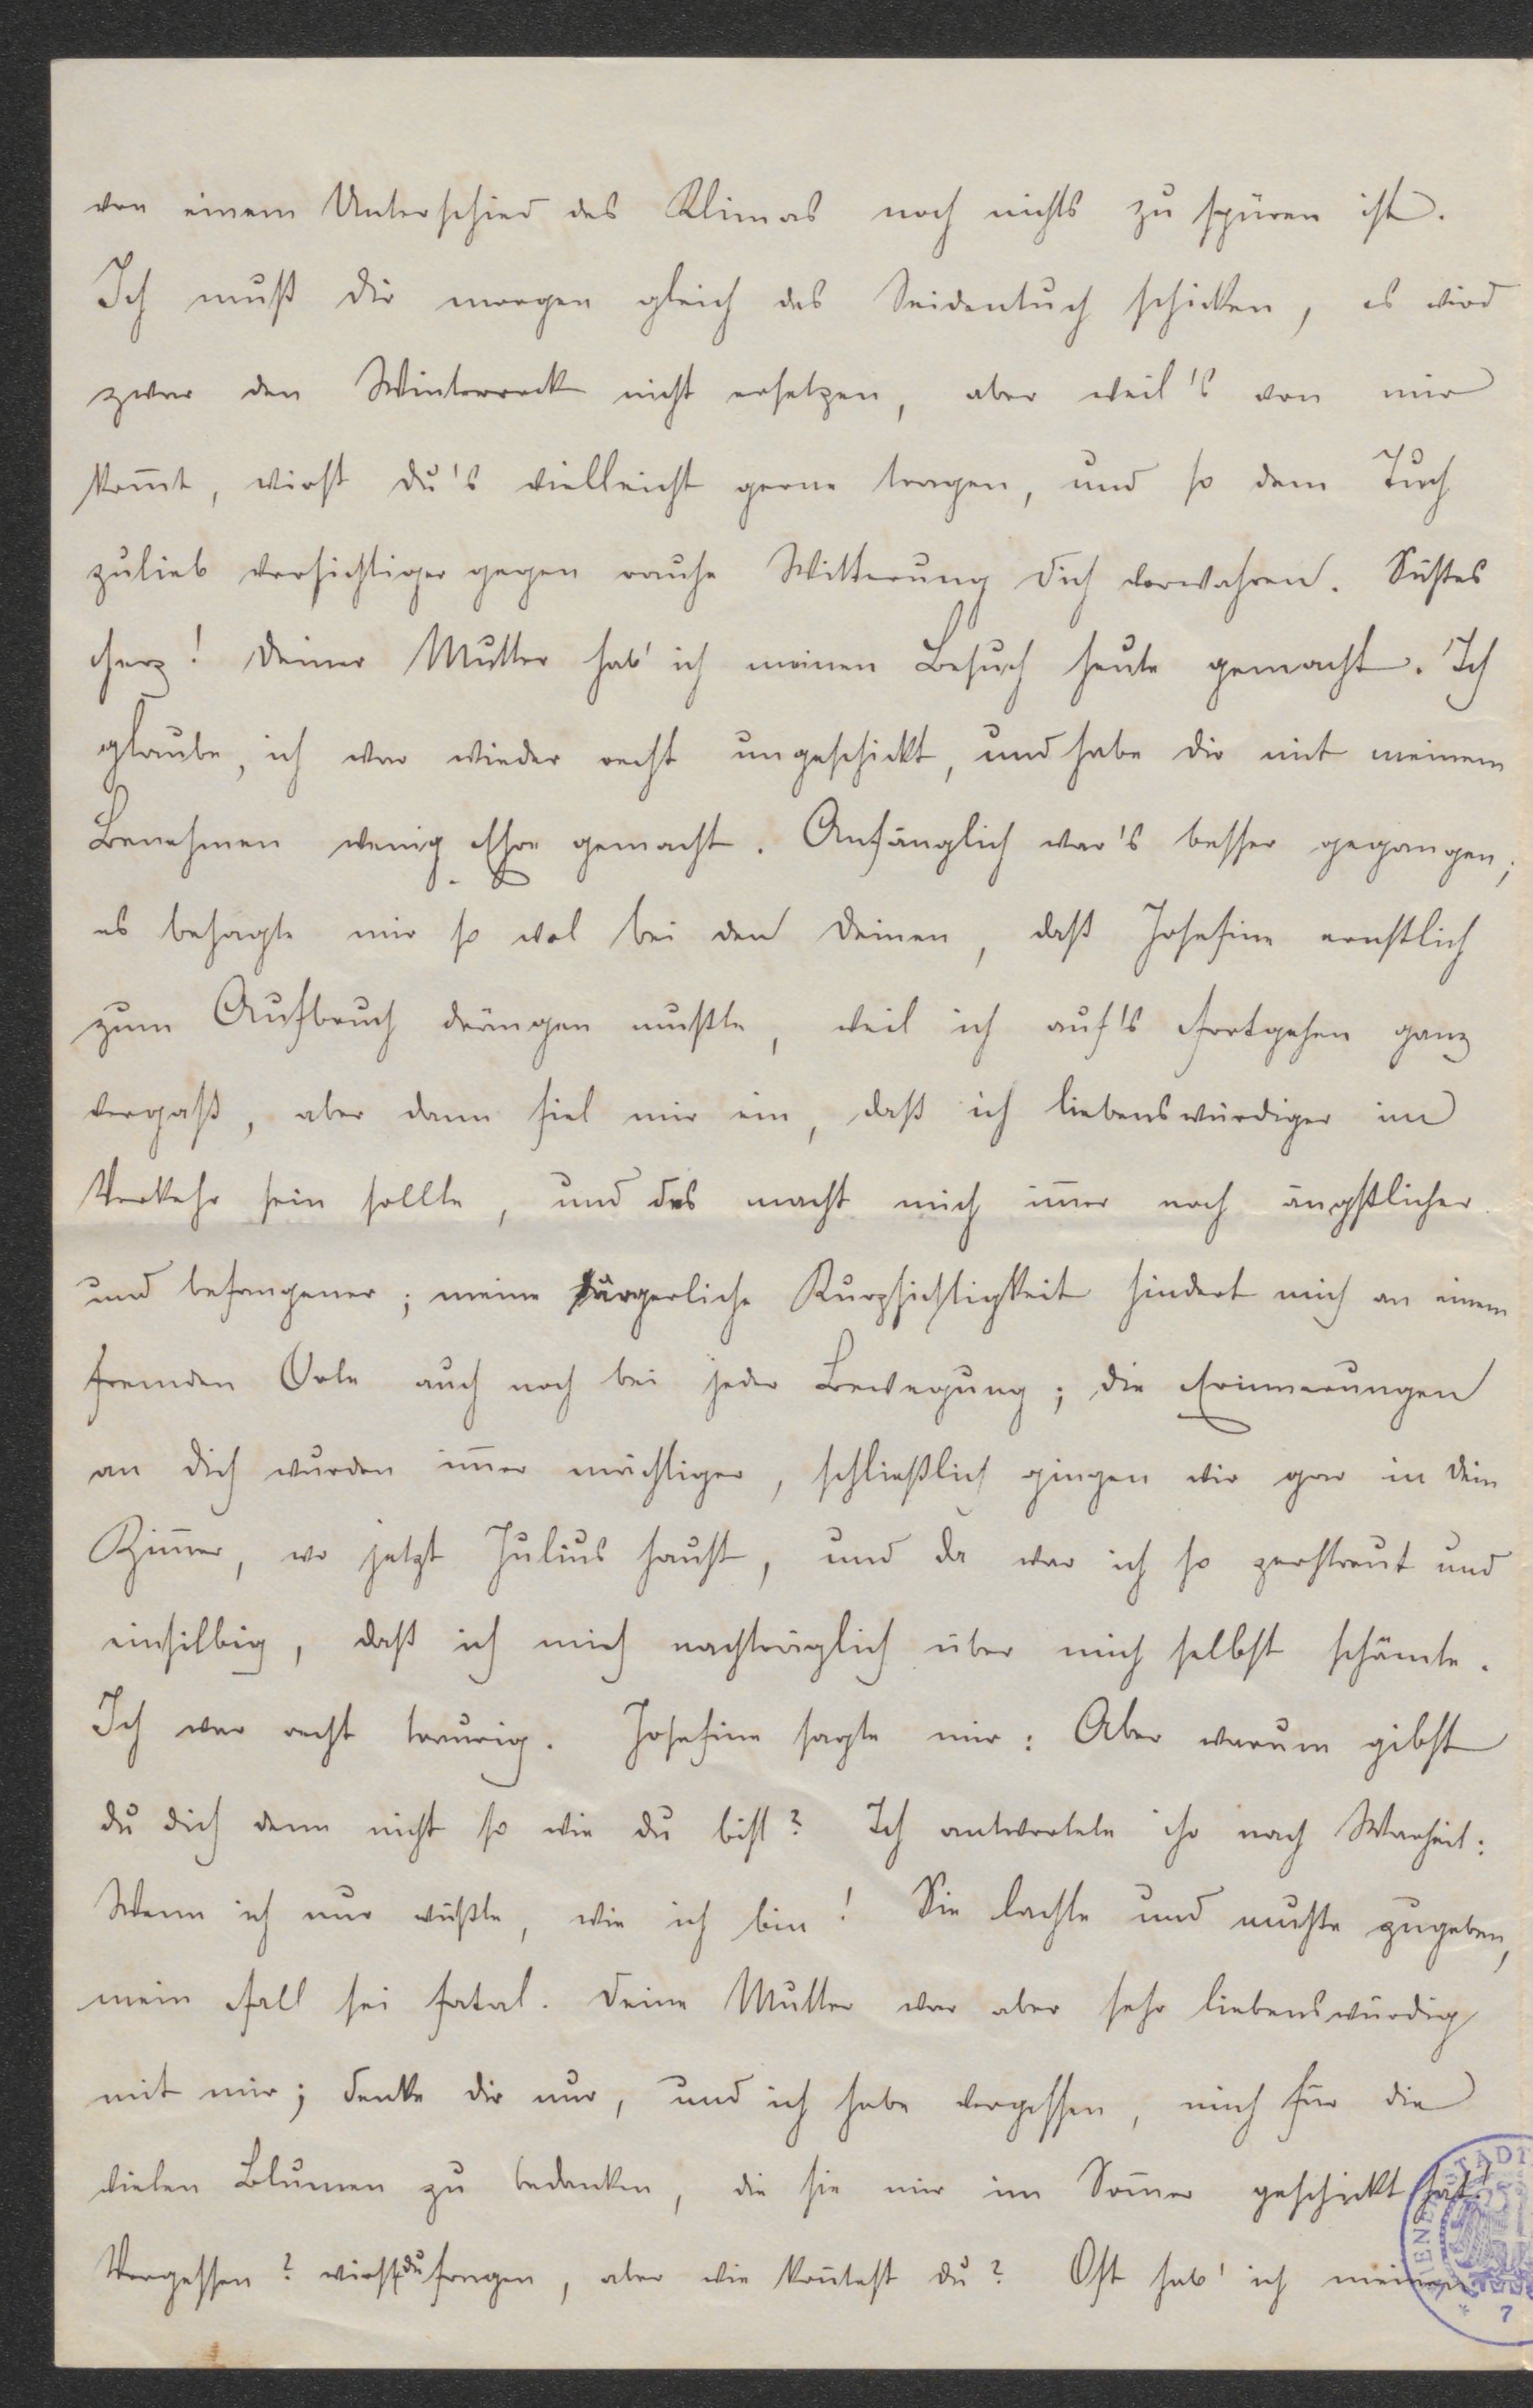 von einem Unterschied des Klimas noch nichts zu spüren ist.
Ich muß dir morgen gleich das Seidentuch schicken, es wird
zwar den Winterrock nicht ersetzen, aber weil's von mir
kom̄t, wirst du's vielleicht gerne tragen, und so dem Tuch
zulieb vorsichtiger gegen rauhe Witterung dich verwahren. Süßes
Herz! Deiner Mutter hab' ich meinen Besuch heute gemacht. Ich
glaube, ich war wieder recht ungeschickt, und habe dir mit meinem
Benehmen wenig Ehre gemacht. Anfänglich war's besser gegangen;
es behagte mir so wol bei den Deinen, daß Josefine ernstlich
zum Aufbruch drängen mußte, weil ich auf's Fortgehen ganz
vergaß, aber dann fiel mir ein, daß ich liebenswürdiger im
Verkehr sein sollte, und das macht mich im̄er noch ängstlicher
und befangener; meine ärgerliche Kurzsichtigkeit hindert mich an einem
fremden Orte auch noch bei jeder Bewegung; die Erinnerungen
an dich wurden im̄er mächtiger, schließlich gingen wir gar in dein
Zim̄er, wo jetzt Julius haust, und da war ich so zerstreut und
einsilbig, daß ich mich nachträglich über mich selbst schämte.
Ich war recht traurig. Josefine sagte mir: Aber warum gibst
du dich denn nicht so wie du bist? Ich antwortete ihr nach Warheit:
Wenn ich nur wüßte, wie ich bin! Sie lachte und mußte zugeben,
mein Fall sei fatal. Deine Mutter war aber sehr liebenswürdig
mit mir; denke dir nur, und ich habe vergessen, mich für die
vielen Blumen zu bedanken, die sie mir im Som̄er geschickt hat!
Vergessen? wirst du fragen, aber wie kon̄test du? Oft hab' ich meinen
WIENER STADT
7